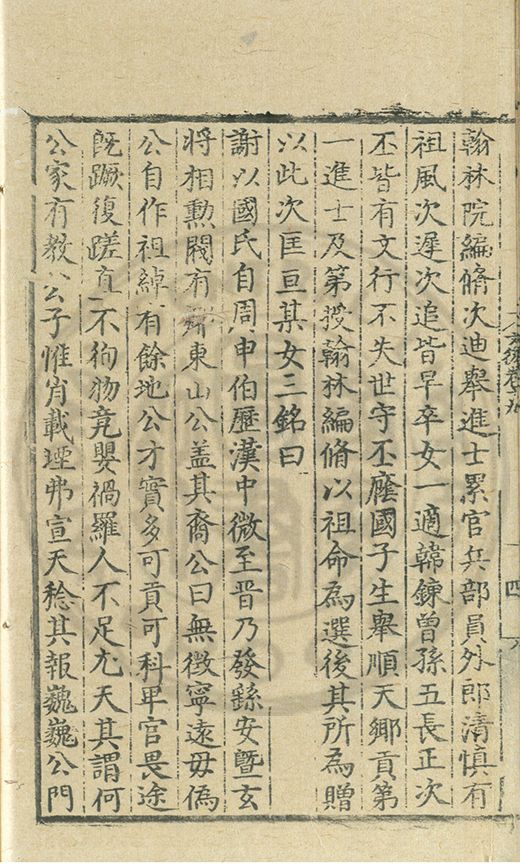 翰林院編脩次迪舉進士累官兵部員外郎清慎有
祖風次遲次追皆早卒女一適韓錬曾孫五長正次
丕皆有文行不失世守丕廕國子生舉順天鄉貢第
一進士及第授翰林編脩以祖命為選後其所為贈
以此次匡亘某女三銘曰
謝以國氏自周申伯歷漢中微至晋乃發繇安曁玄
將相勳閥有 東山公盖其裔公曰無徴寧遠毋偽
公自作祖綽有餘地公才實多可貢可科卑官畏途
旣蹶復蹉直 不徇物竟嬰禍羅人不足尤天其謂何
公家有教 公子惟肖載堙弗宣天稔其報巍巍公門
四